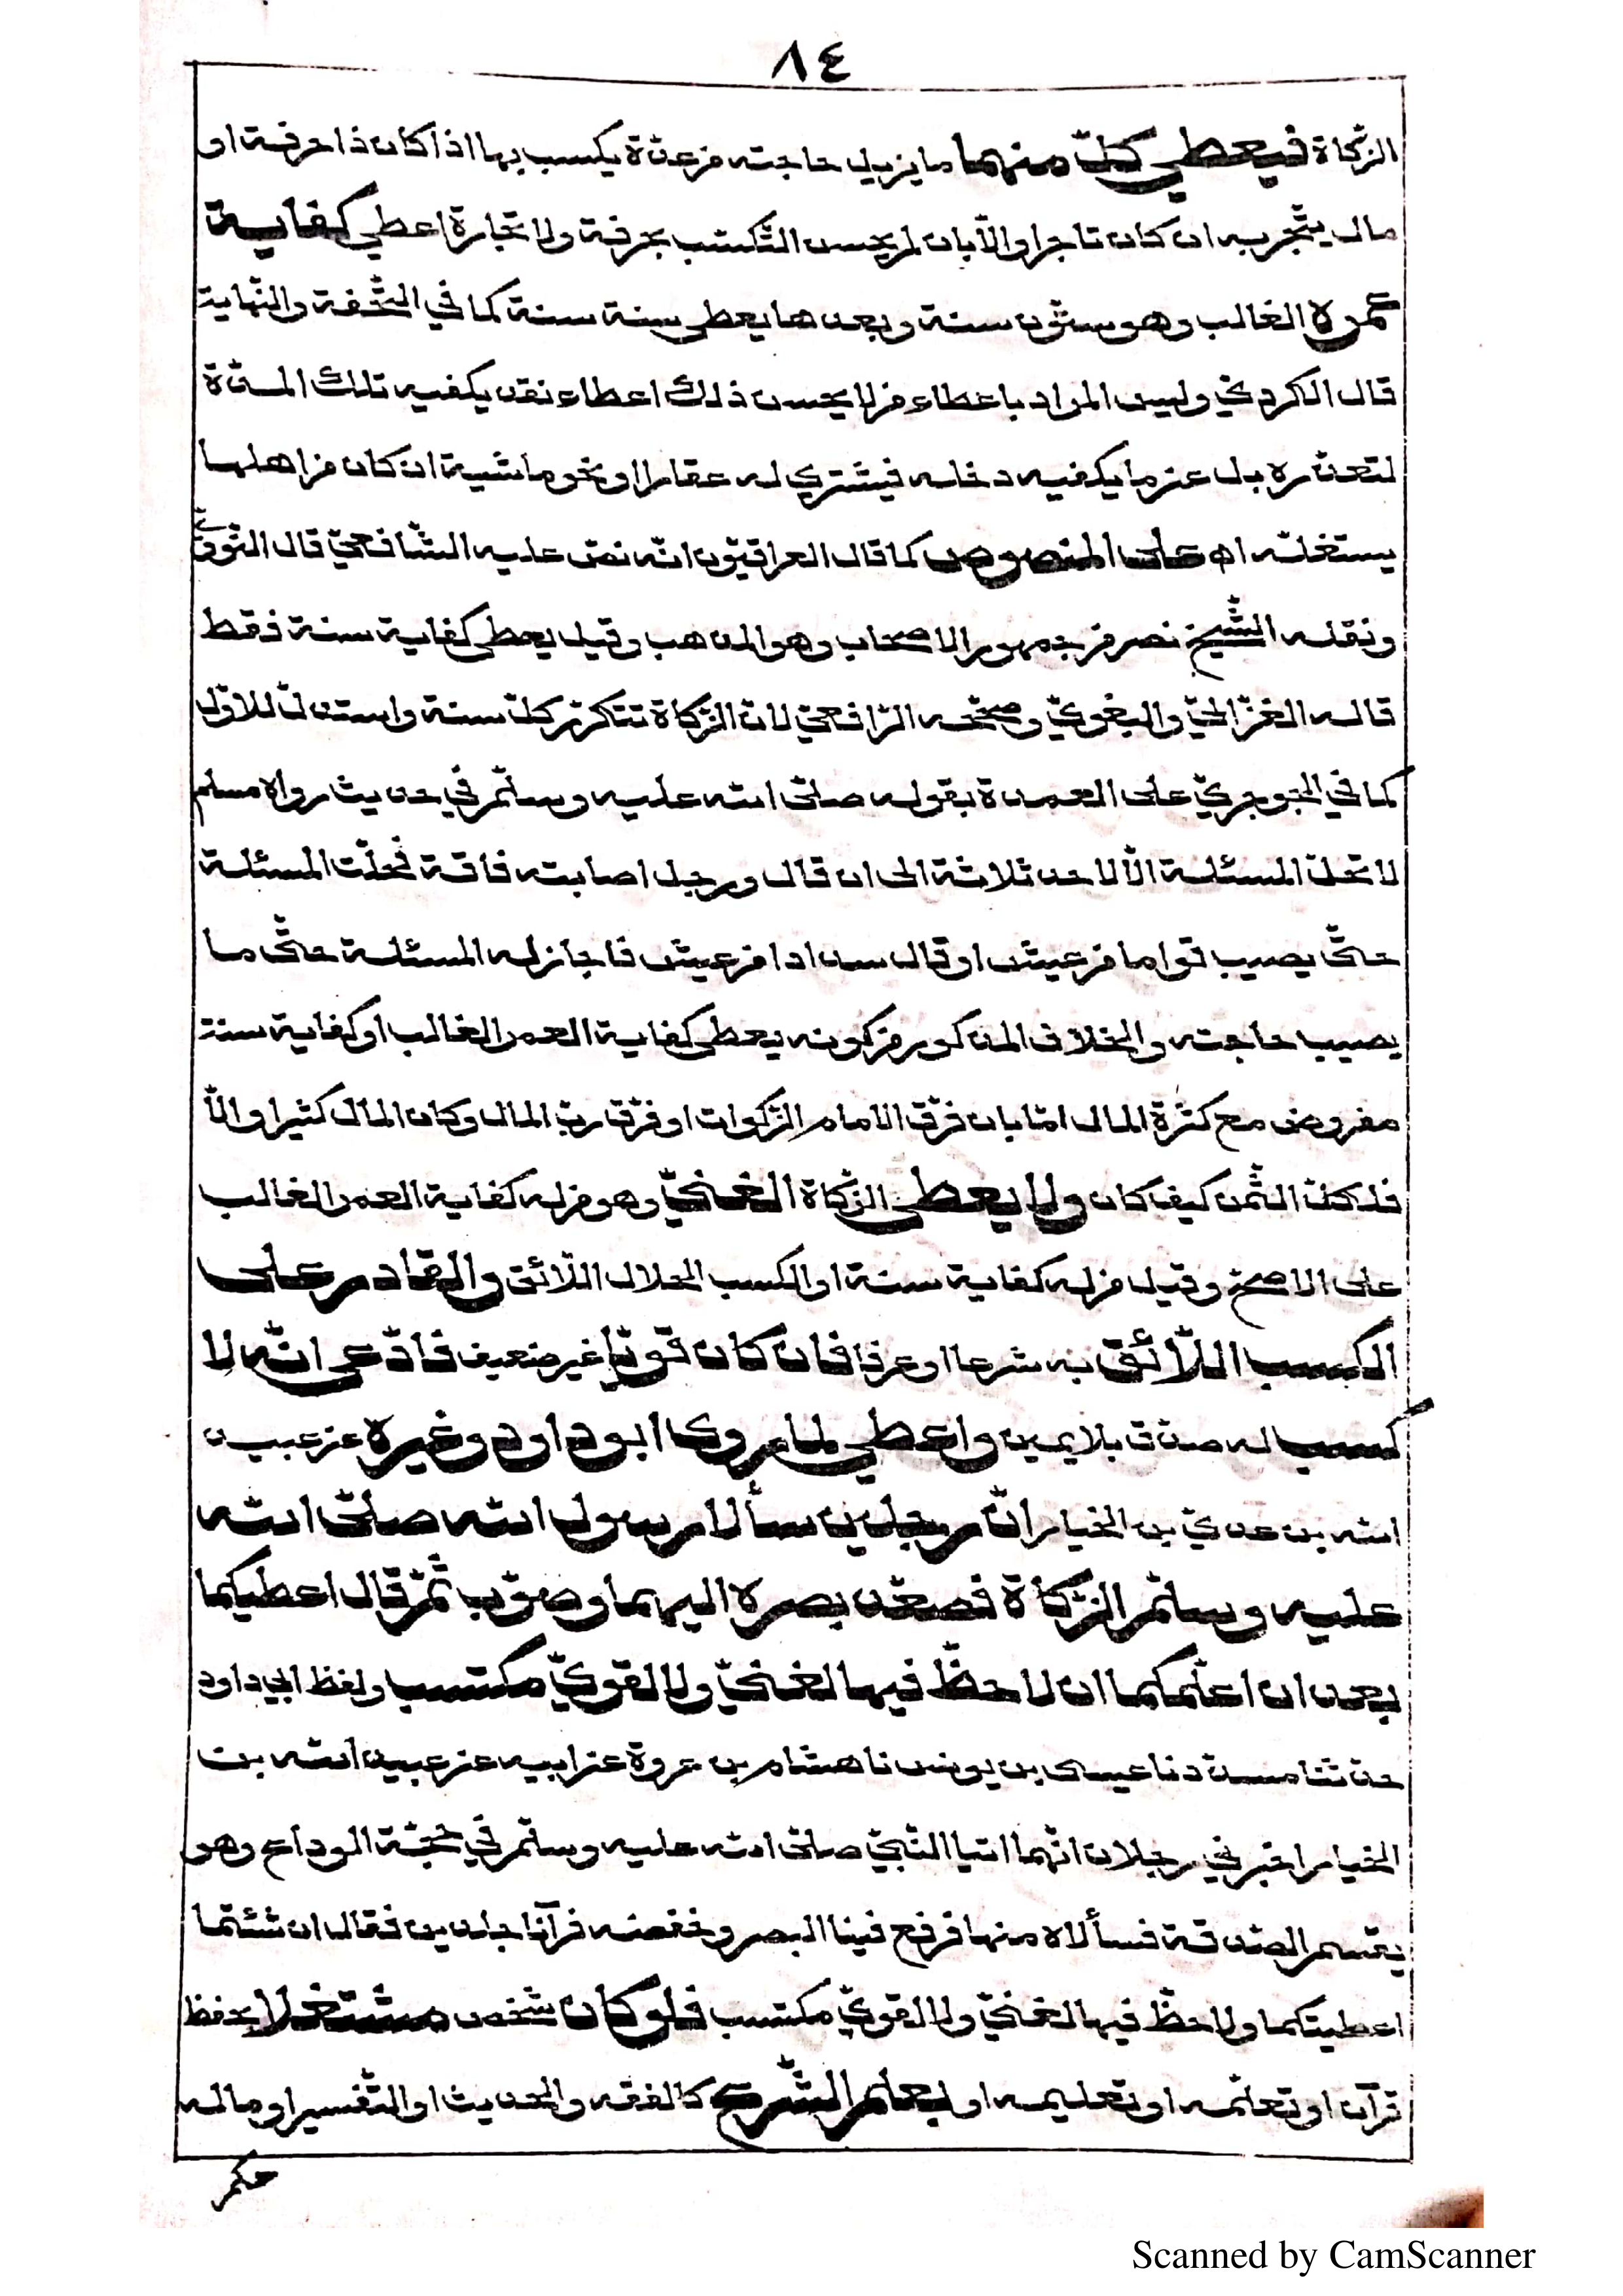 ٨٤
الزكاة فيعطي كل منهما ما يزيل حاجته من عدة يكسب بها اذا كان ذا حرفة او
مال يتجر به ان كان تاجرا والا بان لم يحسن التكسب بحرفة ولا تجارة اعطي كفاية
عمره الغالب وهو ستون سنة وبعدها يعطى سنة سنة كما في التحفة والنهاية
قال الكردي وليس المراد باعطاء من لا يحسن ذلك اعطاء نقد يكفيه تلك المدة
لتعذره بل عن ما يكفيه دخله فيشتري له عقارا او نحو ماشية ان كان من اهلها
يستغله اه على المنصوص كما قال العراقيون انه نص عليه الشافعي قال النووي
ونقله الشيخ نصر من جمهور الاصحاب وهو المذهب وقيل يعطى كفاية سنة فقط
قاله الغزالي والبغوي وصححه الرافعي لان الزكاة تتكرر كل سنة واستدل للاول
كما في الجوجري على العمدة بقوله صلى الله عليه وسلم في حديث رواه مسلم
لا تحل المسئلة الا لاحد ثلاثة الى ان قال ورجل اصابته فاقة فحلت المسئلة
حتى يصيب قواما من عيش او قال سدادا من عيش فاجاز له المسئلة حتى ما
يصيب حاجته والخلاف المذكور من كونه يعطى كفاية العمر الغالب او كفاية سنة
مفروض مع كثرة المال اما بان فرق الامام الزكوات او فرق رب المال وكان المال كثيرا والا
فلكل الثمن كيف كان ولا يعطى الزكاة الغني وهو من له كفاية العمر الغالب
على الاصح وقيل من له كفاية سنة او الكسب الحلال اللائق والقادر على
الكسب اللائق به شرعا او عرفا فان كان قويا غير ضعيف فادعى انه لا
كسب له صدق بلا يمين واعطي لما روى ابو داود وغيره عن عبيد
الله بن عدي بن الخيار ان رجلين سألا رسول الله صلى الله
عليه وسلم الزكاة فصعد بصره اليهما وصوب ثم قال اعطيكما
بعد ان اعلمكما ان لا حظ فيها لغني ولا لقوي مكتسب ولفظ ابي داود
حدثنا مسدد نا عيسى بن يونس نا هشام بن عروة عن ابيه عن عبيد الله بن
الخيار اخبرني رجلان انهما اتيا النبي صلى الله عليه وسلم في حجة الوداع وهو
يقسم الصدقة فسألاه منها فرفع فينا البصر وخفضه فرآنا جلدين فقال ان شئتما
اعطيتكما ولا حظ فيها لغني ولا لقوي مكتسب فلو كان شخص مشتغلا بحفظ
قرآن او تعلمه او تعليمه او بعلم الشرع كالفقه والحديث او التفسير او ما له
حكم
Scanned by CamScanner